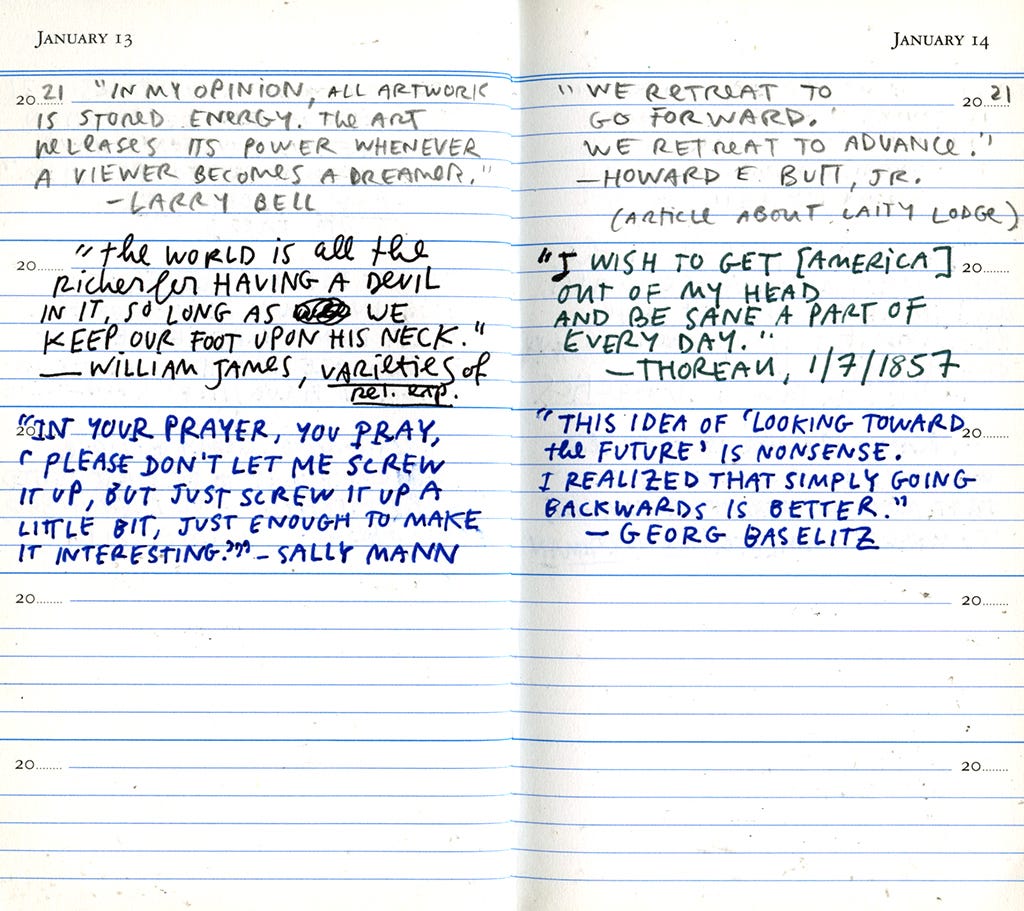 JANUARY 13
2021 "IN MY OPINION, ALL ARTWORK
IS STORED ENERGY. The ART
RELEASES ITS POWER WHENEVER
A VIEWER BECOMES A DREAMER."
-LARRY BELL
20........
"the WORLD is all the
Richer for HAVING A DEVIL
IN IT, SO LONG AS WE
KEEP OUR FOOT UPON HIS NECK."
— WILLIAM JAMES, VARIETIES of
REL. EXP.
20
"IN YOUR PRAYER, YOU PRAY,
' PLEASE DON'T LET ME SCREW
IT UP, BUT JUST SCREW IT UP A
LITTLE BIT, JUST ENOUGH TO MAKE
IT INTERESTING.'" - SALLY MANN
20........
20........
JANUARY 14
"WE RETREAT TO 2021
GO FORWARD.
WE RETREAT TO ADVANCE."
—HOWARD E. BUTT, JR.
(ARTICLE ABOUT LAITY LODGE)
"I WISH TO GET [AMERICA] 20........
OUT OF MY HEAD
AND BE SANE A PART OF
EVERY DAY."
—THOREAU, 1/7/1857
"THIS IDEA OF 'LOOKING TOWARD 20........
the FUTURE' IS NONSENSE.
I REALIZED THAT SIMPLY GOING
BACKWARDS IS BETTER."
— GEORG BASELITZ
20........
20........